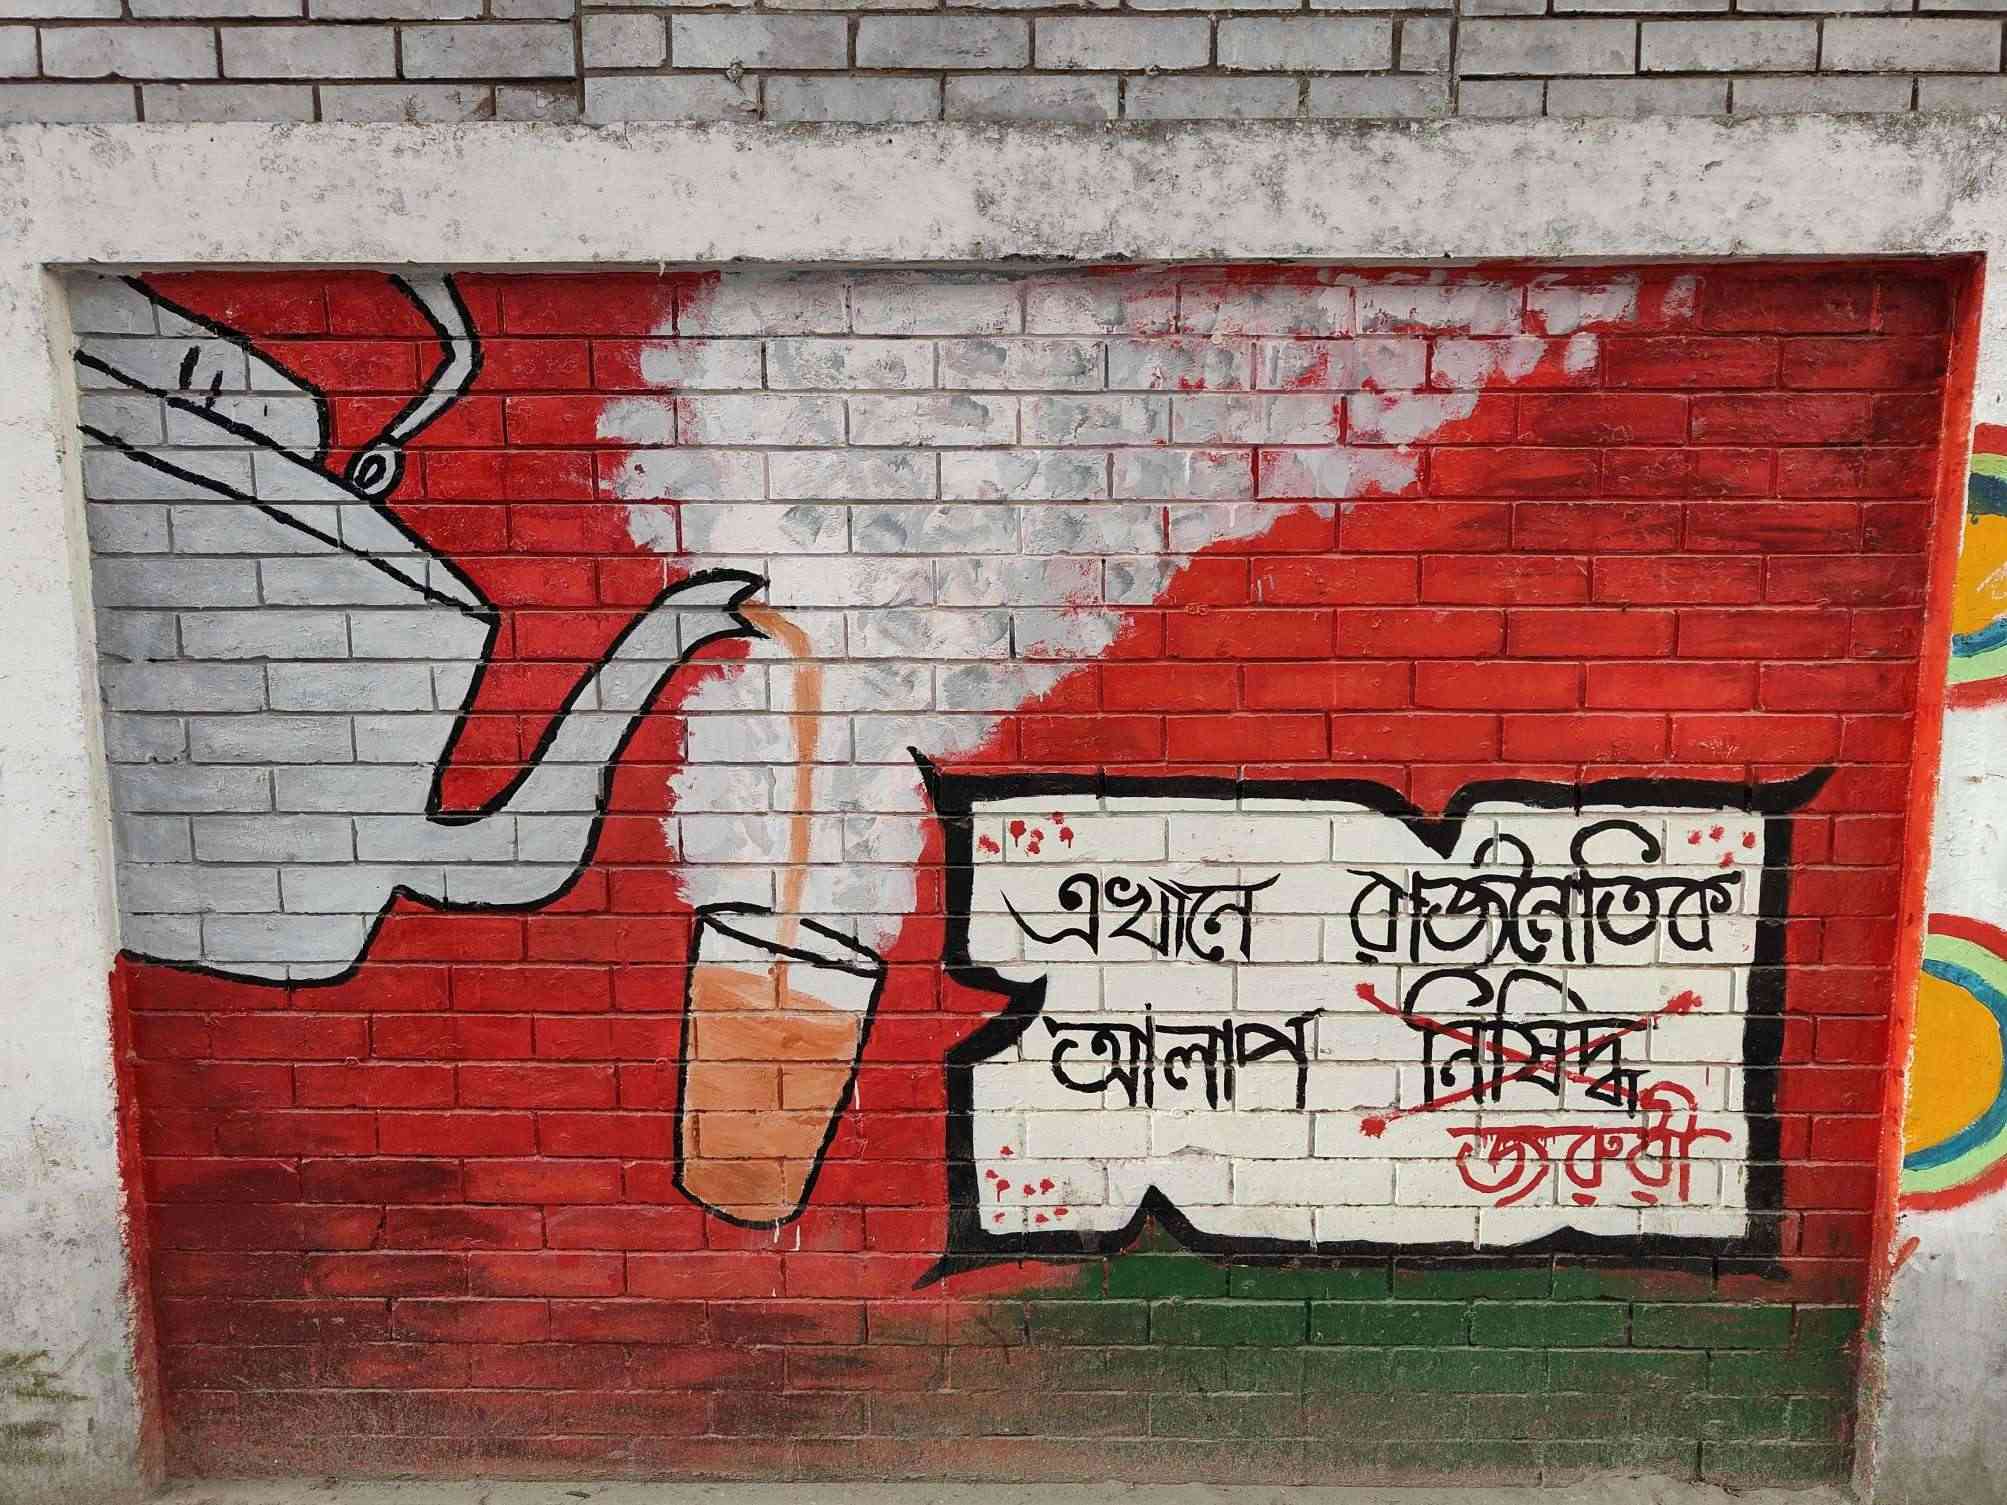 এখানে রাজনৈতিক
আলাপ নিষিদ্ধ
জরুরী